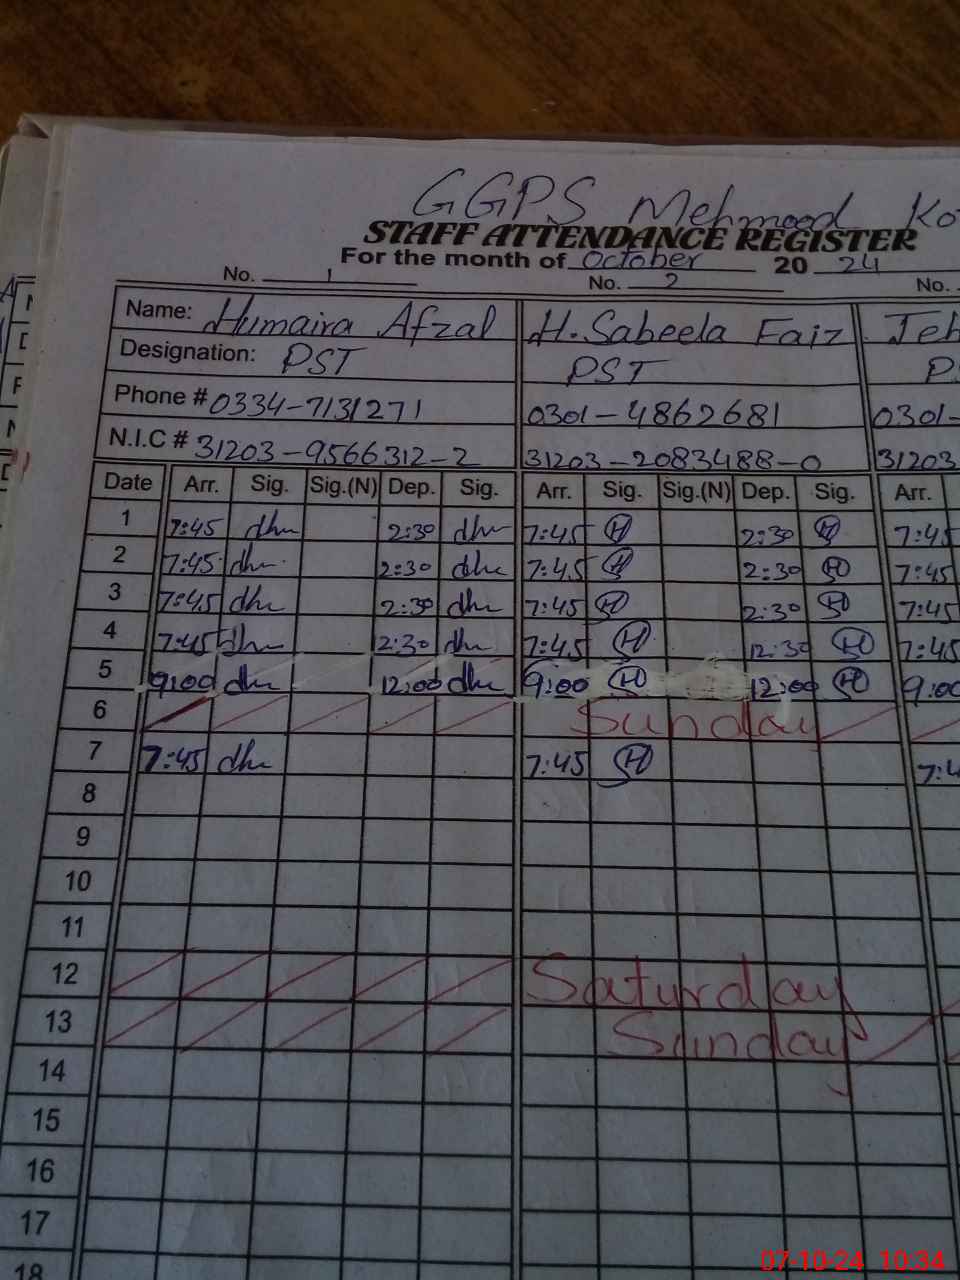 GGPS Mehmood Ko
STAFF ATTENDANCE REGISTER
For the month of October 20 24
No. 1 No. 2 No.
Name: Humaira Afzal H. Sabeela Faiz Jeh
Designation: PST PST P
Phone # 0334-7131271 0301-4862681 0301-
N.I.C # 31203-9566312-2 31203-2083488-0 31203
Date Arr. Sig. Sig.(N) Dep. Sig. Arr. Sig. Sig.(N) Dep. Sig. Arr.
1 7:45 2:30 7:45 H 2:30 H 7:45
2 7:45 2:30 7:45 H 2:30 H 7:45
3 7:45 2:30 7:45 H 2:30 H 7:45
4 7:45 12:30 7:45 H 12:30 H 7:45
5 9:00 12:00 9:00 H 12:00 H 9:00
6 Sunday
7 7:45 7:45 H 7:4
8
9
10
11
12 Saturday
13 Sunday
14
15
16
17
18
07-10-24 10:34